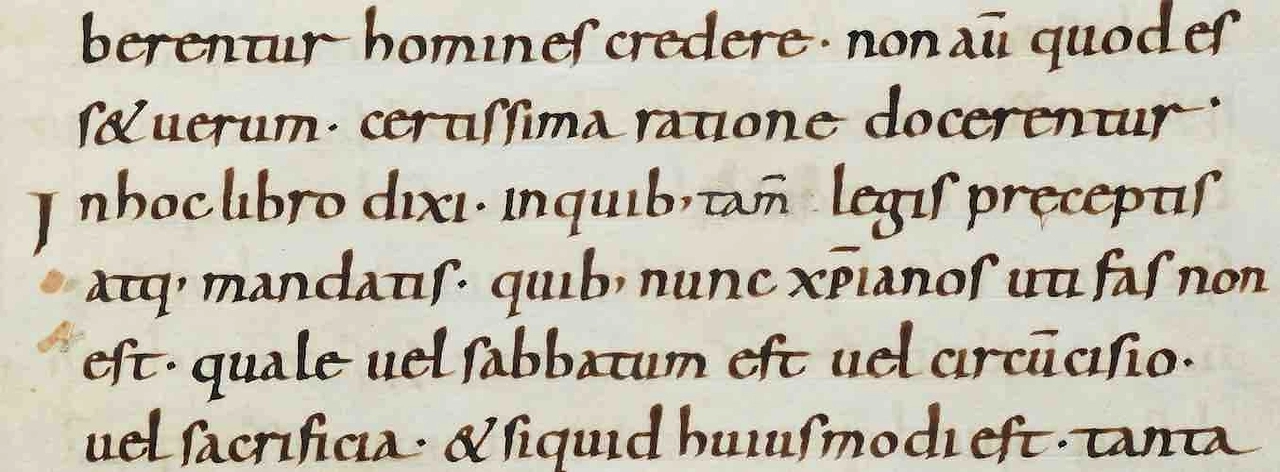 berentur homines credere· non aū quod es
s&uerum· certissima ratione docerentur·
Inhoc libro dixi· inquib; tam̄ legis pręceptis
atq; mandatis· quib; nunc xp̄ianos uti fas non
est· quale uel sabbatum est uel circūcisio·
uel sacrificia· & siquid huiusmodi est· tanta